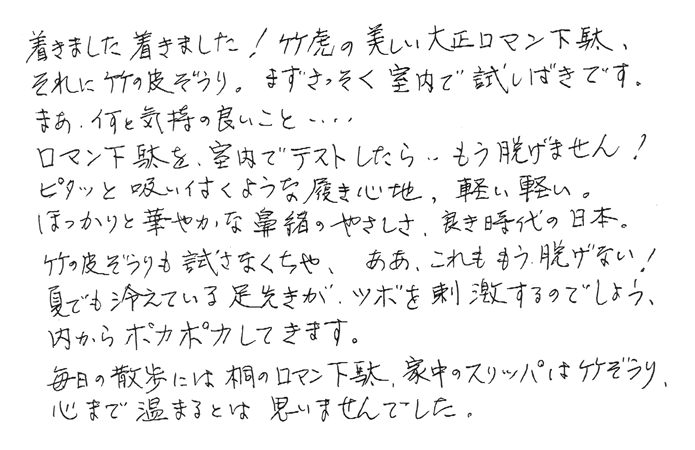 着きました着きました！竹虎の美しい大正ロマン下駄、
それに竹の皮ぞうり。まずさっそく室内で試しばきです。
まあ、何と気持の良いこと‥‥
ロマン下駄を、室内でテストしたら‥もう脱げません！
ピタッと吸い付くような履き心地、軽い軽い。
ほっかりと華やかな鼻緒のやさしさ、良き時代の日本。
竹の皮ぞうりも試さなくちゃ、ああ、これももう脱げない！
夏でも冷えている足先きが、ツボを刺激するのでしょう、
内からポカポカしてきます。
毎日の散歩には桐のロマン下駄、家中のスリッパは竹ぞうり、
心まで温まるとは思いませんでした。